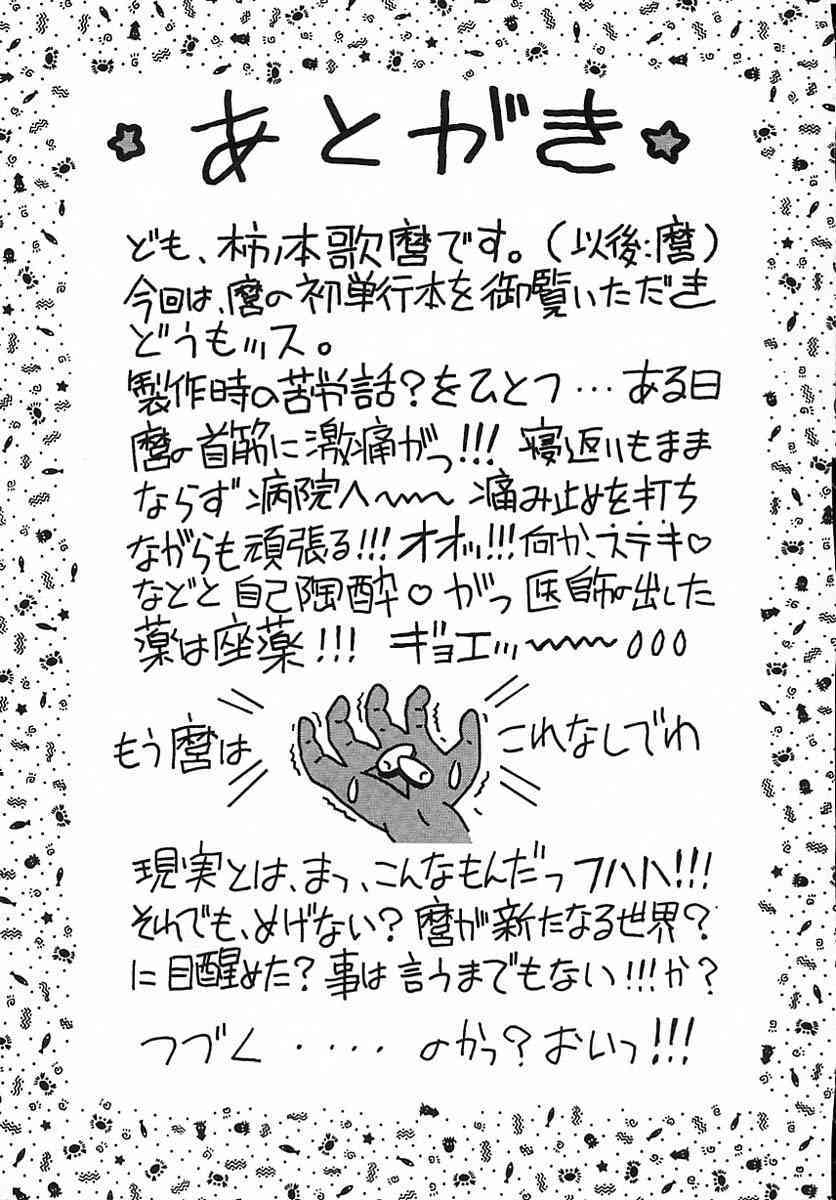 あとがき
ども、柿ノ本歌麿です。(以後:麿)
今回は、麿の初単行本を御覧いただき
どうもッス。
製作時の苦労話?をひとつ…ある日
麿の首筋に激痛がっ!!! 寝返りもまま
ならず病院へ〜〜 痛み止めを打ち
ながらも頑張る!!!オオッ!!!何か、ステキ♡
などと自己陶酔♡がっ医師の出した
薬は座薬!!! ギョエッ〜〜〜
もう麿は これなしでわ
現実とは、まっ、こんなもんだっフハハ!!!
それでも、めげない?麿が新たなる世界?
に目醒めた?事は言うまでもない!!!か?
つづく・・・・のかっ?おいっ!!!